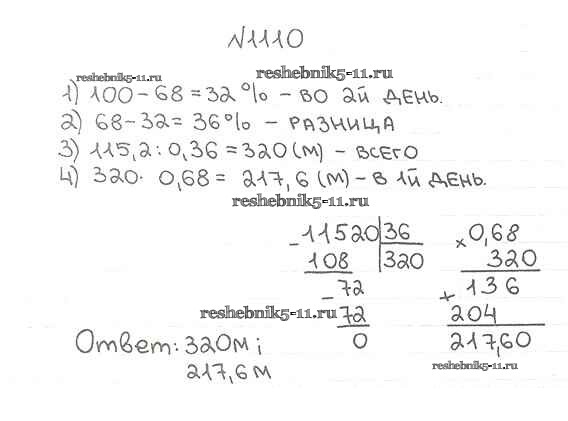 №1110
reshebnik5-11.ru reshebnik5-11.ru
1) 100-68=32% - ВО 2Й ДЕНЬ.
2) 68-32=36% - РАЗНИЦА
3) 115,2:0,36=320(м) - ВСЕГО
4) 320· 0,68= 217,6(м) - В 1Й ДЕНЬ.
reshebnik5-11.ru
- 11520 36 × 0,68
108 320 320
- 72 + 136
reshebnik5-11.ru 72 204
Ответ: 320м; 0 217,60
217,6м reshebnik5-11.ru